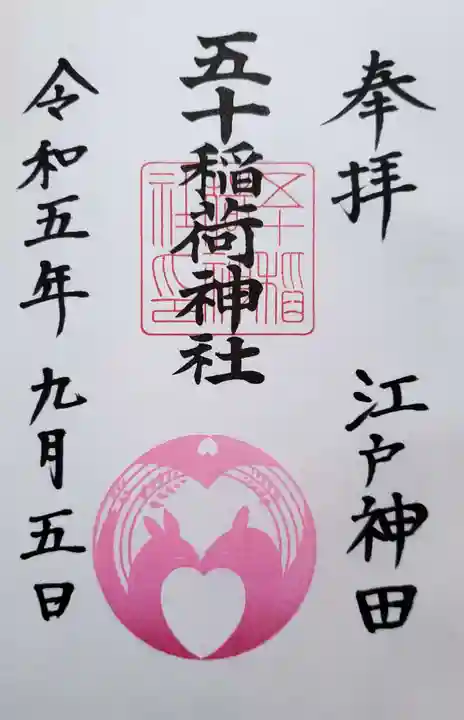 奉拝
江戸神田
五十稲荷神社
令和五年
九月五日